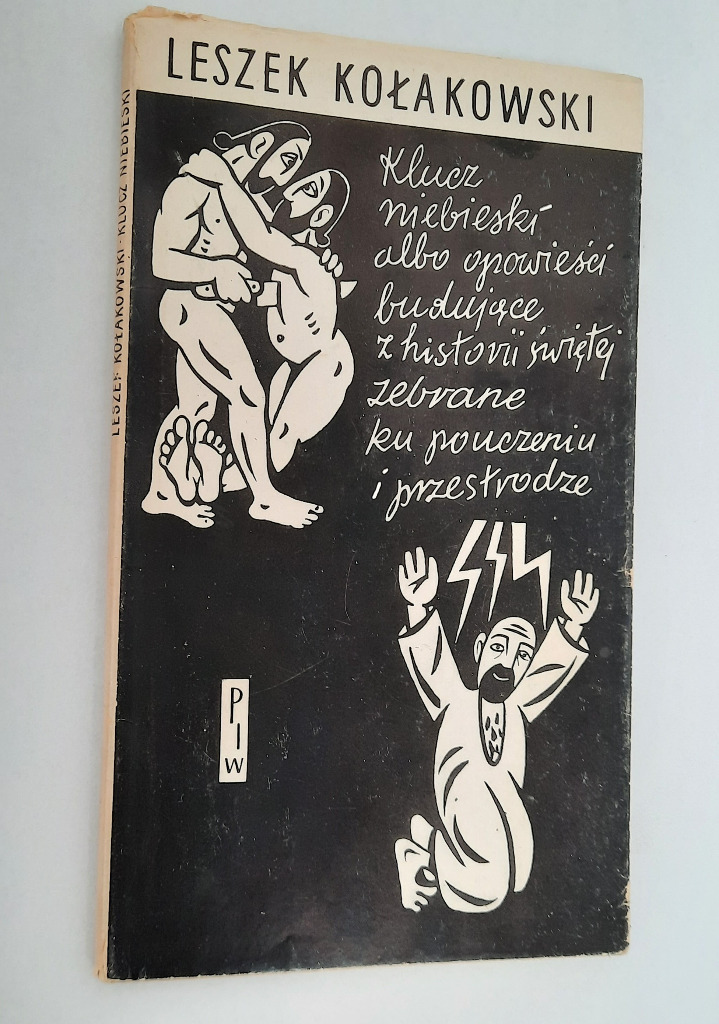 LESZEK KOŁAKOWSKI
Klucz
niebieski
albo opowieści
budujące
z historii świętej
zebrane
ku pouczeniu
i przestrodze
P
I
W
LESZEK KOŁAKOWSKI · KLUCZ NIEBIESKI